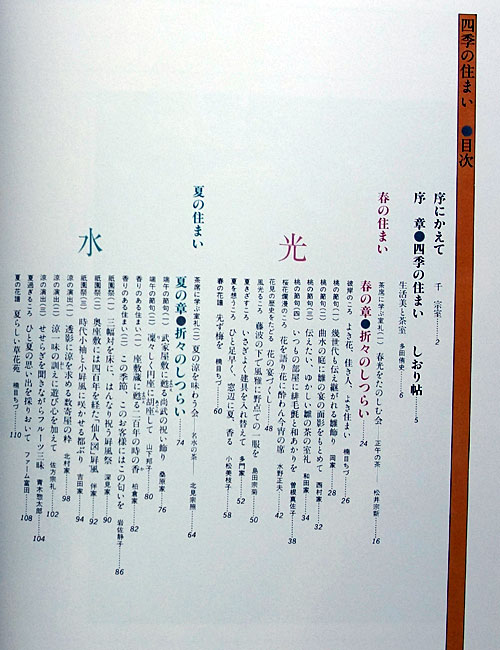 四季の住まい ●目次
序にかえて 千 宗室……2
序 章●四季の住まい しおり帖……5
生活美と茶室 多田侑史……6
春の住まい
光
茶席に学ぶ室礼(一) 春光をたのしむ会 正午の茶 松井宗新……16
春の章●折々のしつらい……24
彼岸のころ よき花、佳き人、よき住まい 楠目ちづ……26
桃の節句(一) 幾世代も伝え継がれる雛飾り 岡家……28
桃の節句(二) 曲水の庭に雛の宴の面影をもとめて 西村家……32
桃の節句(三) 伝えたい、ゆかしい雛の茶の室礼 和田家……34
桃の節句(四) いつもの部屋に緋毛氈と和あかりを 曽根真佐子……38
桜花爛漫のころ 花を語り花に酔わん今宵の席 水野正夫……42
花見の歴史をたどる 花の宴づくし……48
風光るころ 藤波の下で風雅に野点ての一服を 島田宗菊……50
夏きざすころ いさぎよく建具を入れ替えて 多門家……52
夏を想うころ ひと足早く、窓辺に夏、香る 小松美枝子……58
春の花譜 先ず梅を 楠目ちづ……60
夏の住まい
水
茶席に学ぶ室礼(二) 夏の涼を味わう会 名水の茶 北見宗照……64
夏の章●折々のしつらい……74
端午の節句(一) 武家屋敷に甦る尚武の祝い飾り 桑原家……76
端午の節句(二) 凜々しく円座に胡座して 山下邦子……80
香りのある住まい(一) 座敷蔵に甦る二百年の時の香 柏倉家……82
香りのある住まい(二) この季節、このお客様にはこの匂いを 岩佐静子……86
祇園祭(一) 三幅対を床に、はんなり祝う屏風祭 深見家……90
祇園祭(二) 奥座敷には四百年を経た「仙人図」屏風 伴家……92
祇園祭(三) 時代小袖と小屏風に咲かせる都ぶり 吉田家……94
涼の演出(一) 透影に涼を求める数寄屋の粋 北村家……98
涼の演出(二) 涼一味の訓えに遊び心を加えて 佐方宗礼……102
涼の演出(三) せせらぎを聞きながらフルーツ三昧 青木惣太郎……104
夏過ぎるころ ひと夏の思い出を作りおいて ファーム富田……108
夏の花譜 夏らしい草花苑 楠目ちづ……110